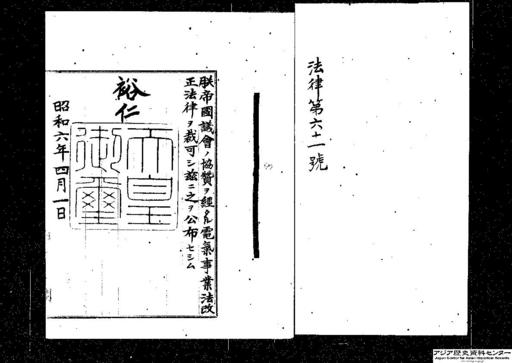 法律第六十一號
朕帝國議會ノ協賛ヲ經タル電氣事業法改
正法律ヲ裁可シ茲ニ之ヲ公布セシム
裕仁
天皇
御璽
昭和六年四月一日
アジア歴史資料センター
Japan Center for Asian Historical Records